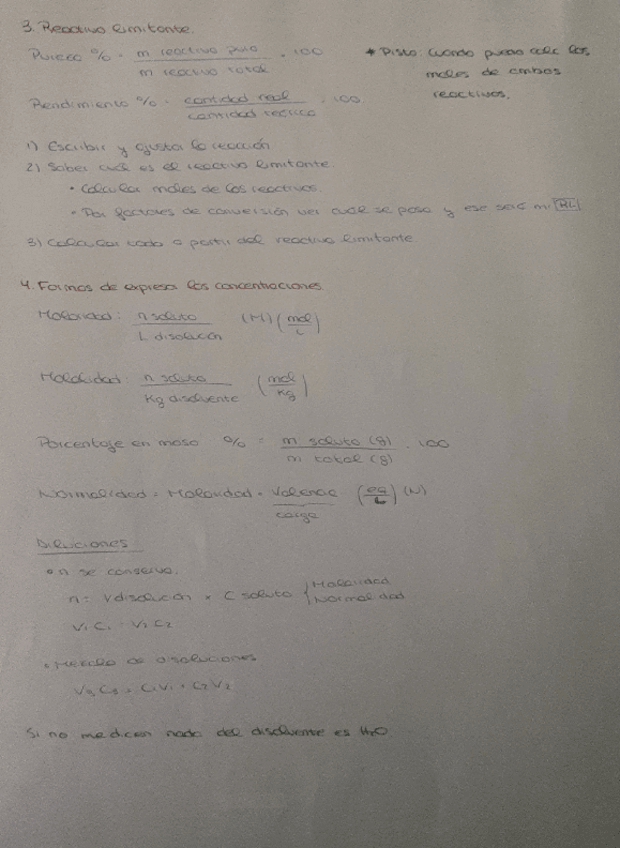 3. Reactivo limitante.
Pureza % = m reactivo puro / m reactivo total · 100
* Pista: Cuando puedo calc los moles de ambos reactivos.
Rendimiento % = cantidad real / cantidad teórica · 100
1) Escribir y ajustar la reacción
2) Saber cuál es el reactivo limitante.
• Calcular moles de los reactivos.
• Por factores de conversión ver cual se pasa y ese será mi RL
3) Calcular todo a partir del reactivo limitante
4. Formas de expresar las concentraciones
Molaridad: n soluto / L disolución (M) (mol/L)
Molalidad: n soluto / Kg disolvente (mol/Kg)
Porcentaje en masa % = m soluto (g) / m total (g) · 100
Normalidad = Molaridad · Valencia / carga (eq/L) (N)
Diluciones
• n se conserva.
n = V disolución × C soluto { Molaridad
Normalidad
V1 C1 = V2 C2
• Mezcla de disoluciones
V3 C3 = C1V1 + C2V2
Si no me dicen nada del disolvente es H2O